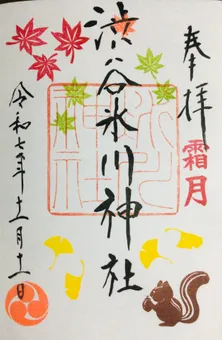 奉拝
霜月
渋谷氷川神社
令和七年十一月十一日